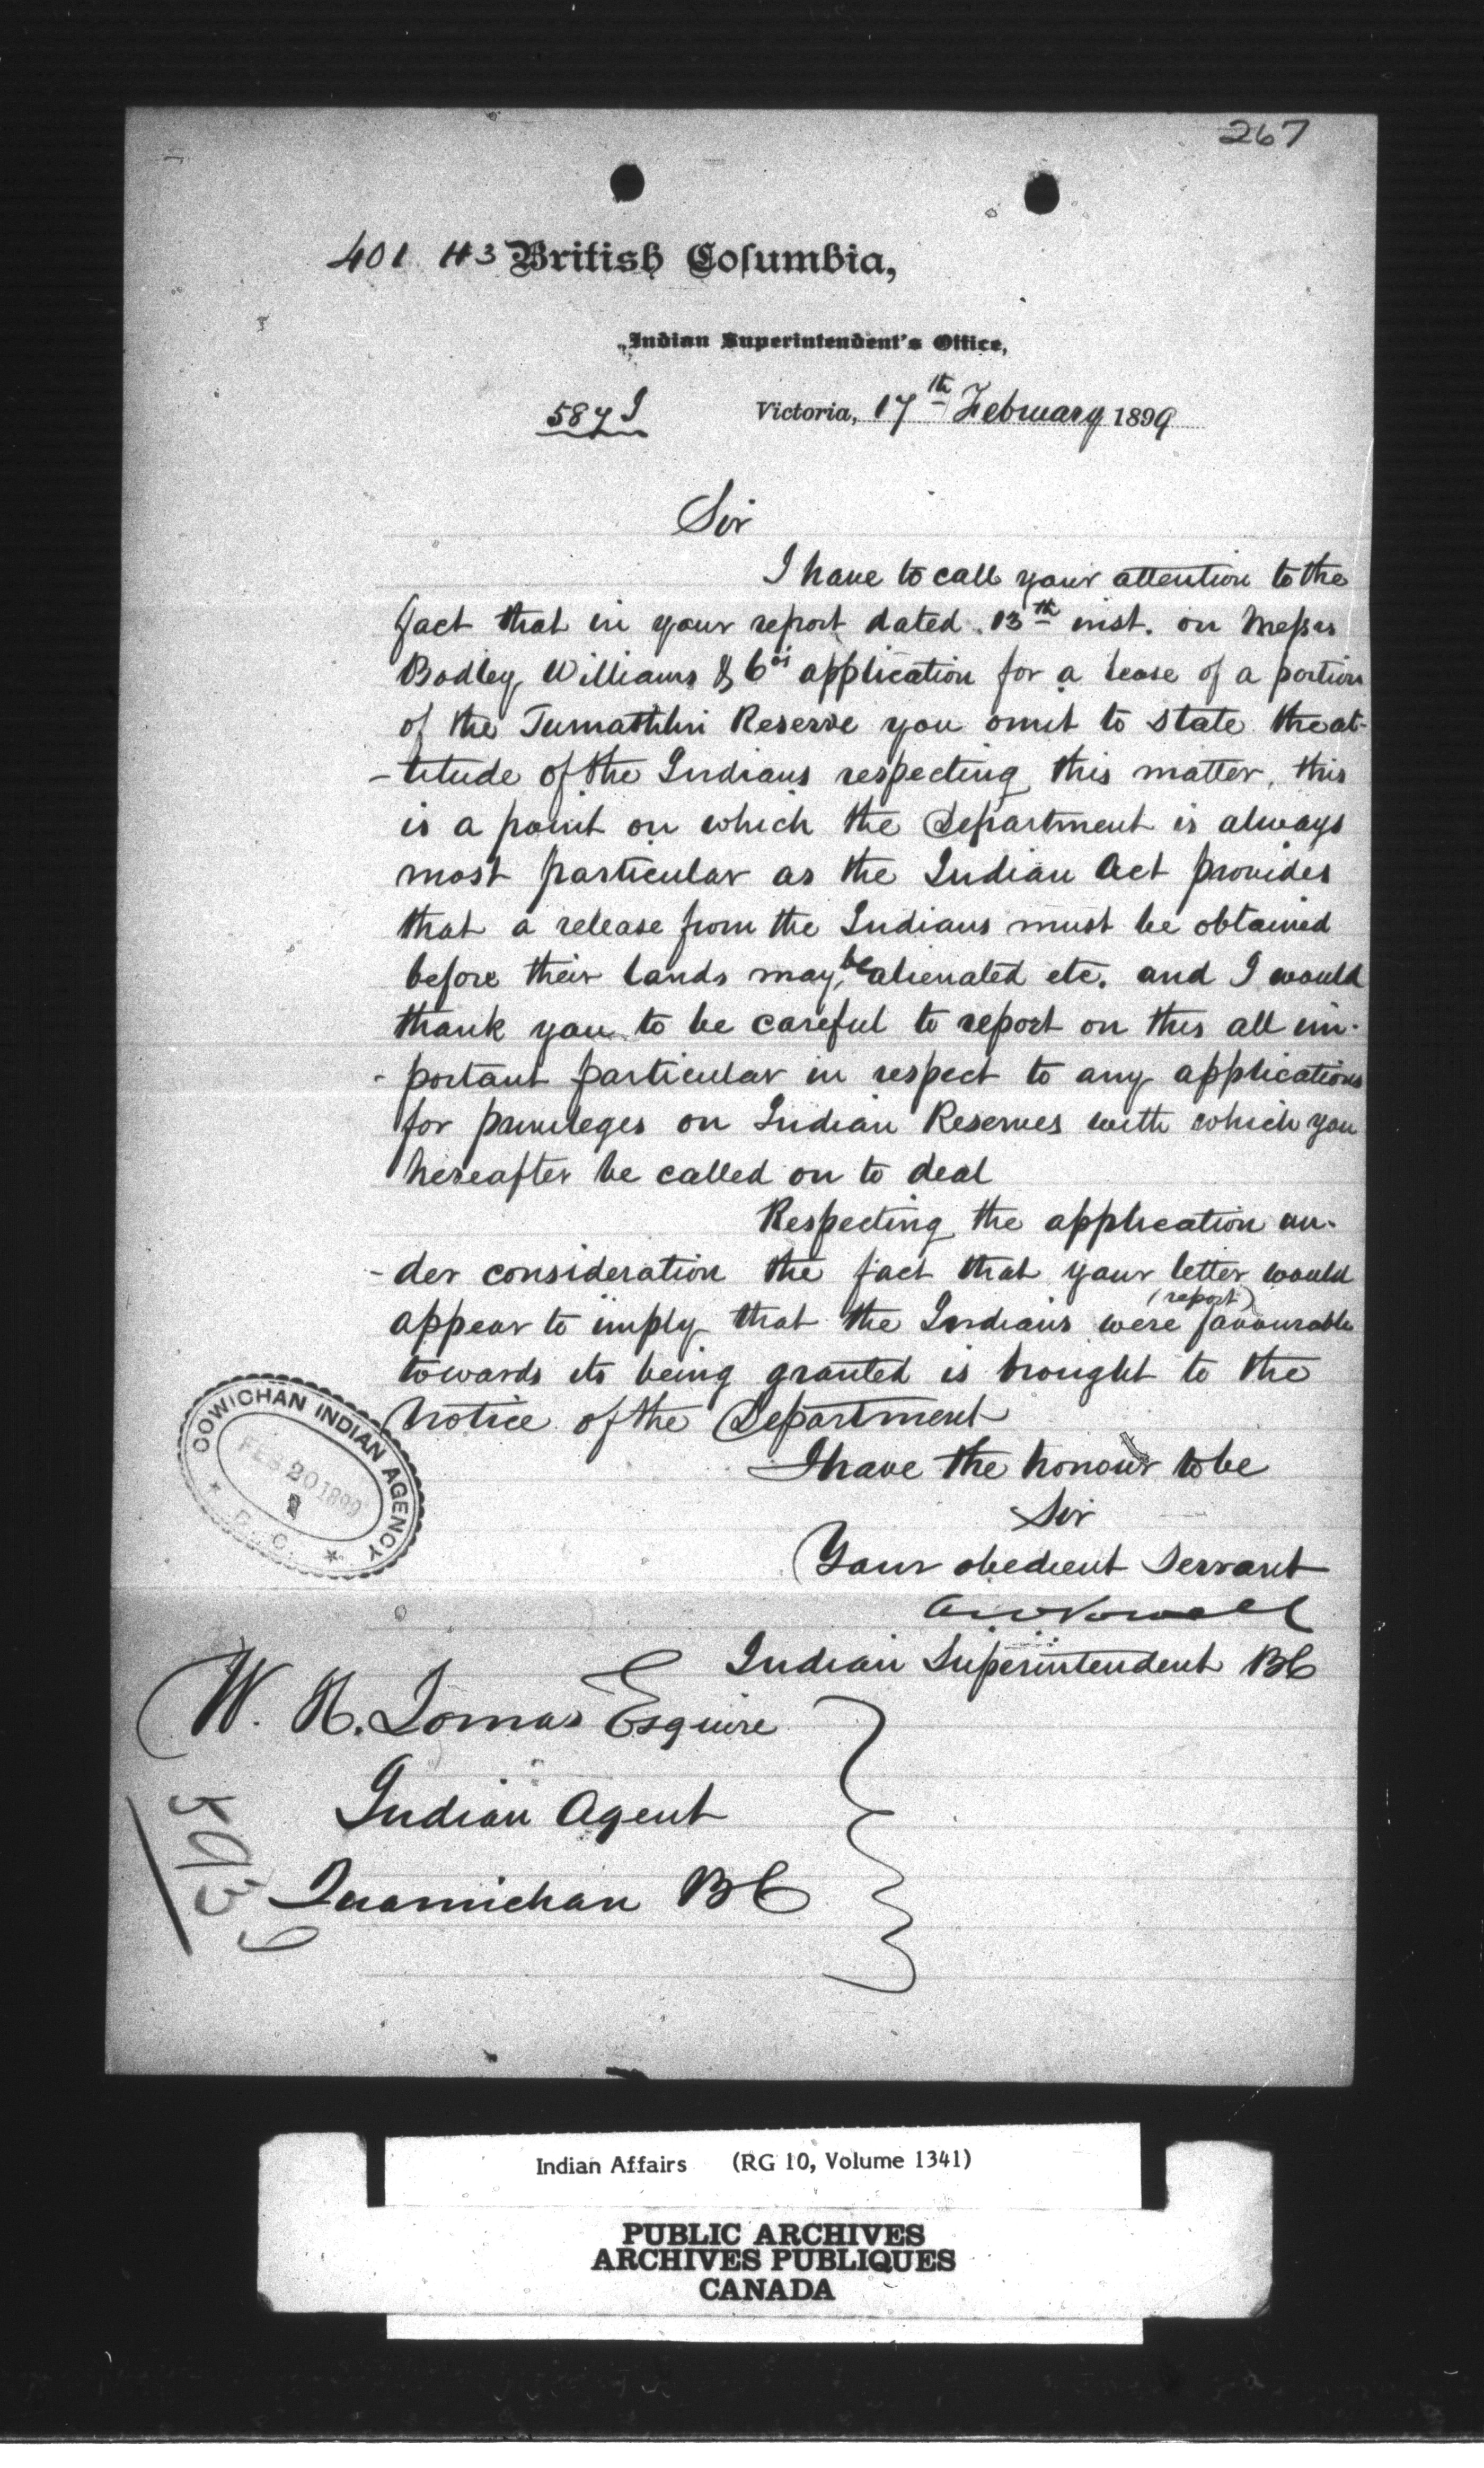 267
401 H3 British Columbia,
Indian Superintendent's Office,
587 J Victoria, 17th February 1899
Sir
I have to call your attention to the
fact that in your report dated 13th inst. on Messrs
Bodley Williams & Cos application for a lease of a portion
of the Reserve you omit to state the at-
-titude of the Indians respecting this matter, this
is a point on which the Department is always
most particular as the Indian Act provides
that a release from the Indians must be obtained
before their lands may be alienated etc. and I would
thank you to be careful to report on this all im-
-portant particular in respect to any applications
for privileges on Indian Reserves with which you
hereafter be called on to deal
Respecting the application un-
-der consideration the fact that your letter would
(report)
appear to imply that the Indians were favourable
towards its being granted is brought to the
notice of the Department
I have the honour to be
Sir
Your obedient Servant
A W Vowell
Indian Superintendent BC
COWICHAN INDIAN AGENCY
FEB 20 1899
B. C.
W. H. Lomas Esquire
Indian Agent
Quamichan BC
Indian Affairs (RG 10, Volume 1341)
PUBLIC ARCHIVES
ARCHIVES PUBLIQUES
CANADA